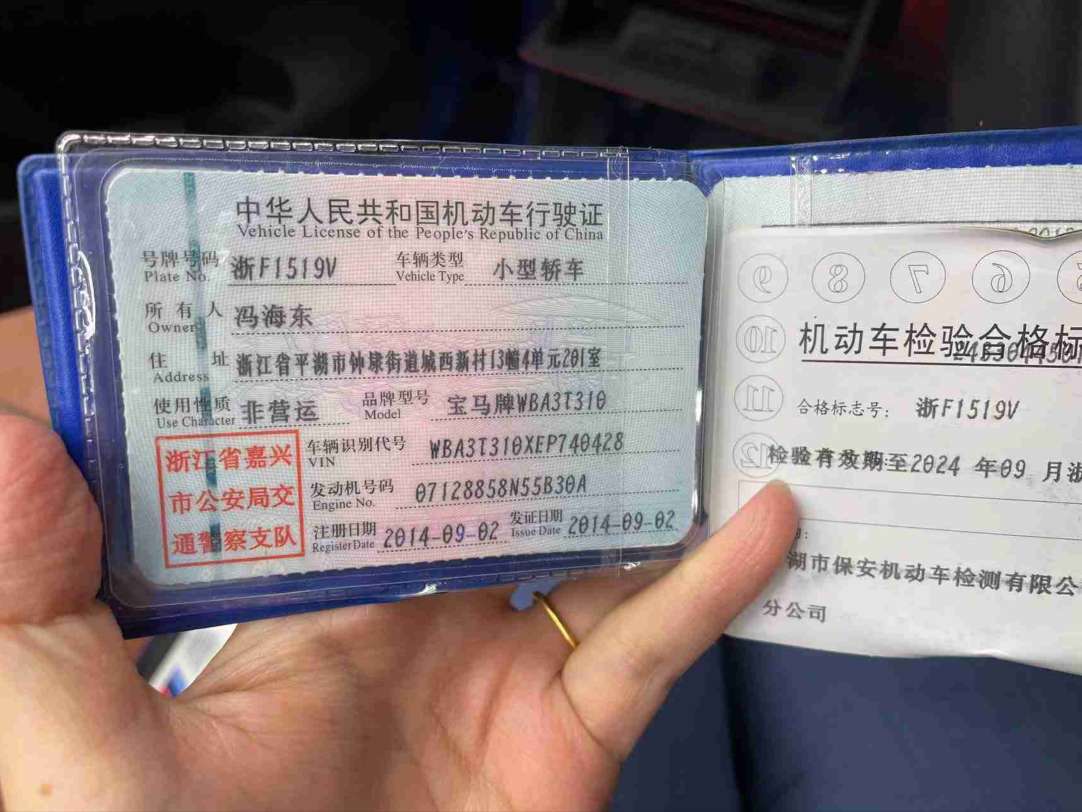 中华人民共和国机动车行驶证
Vehicle License of the People's Republic of China
号牌号码 浙F1519V 车辆类型 小型轿车
Plate No. Vehicle Type
所有人 冯海东
Owner
住址 浙江省平湖市钟埭街道城西新村13幢4单元201室
Address
使用性质 非营运 品牌型号 宝马牌WBA3T310
Use Character Model
浙江省嘉兴
市公安局交
通警察支队
车辆识别代号 WBA3T310XEP740428
VIN
发动机号码 07128858N55B30A
Engine No.
注册日期 2014-09-02 发证日期 2014-09-02
Register Date Issue Date
9 8 7 6
10
11
12
机动车检验合格标
合格标志号: 浙F1519V
检验有效期至2024 年09 月浙
湖市保安机动车检测有限公
分公司